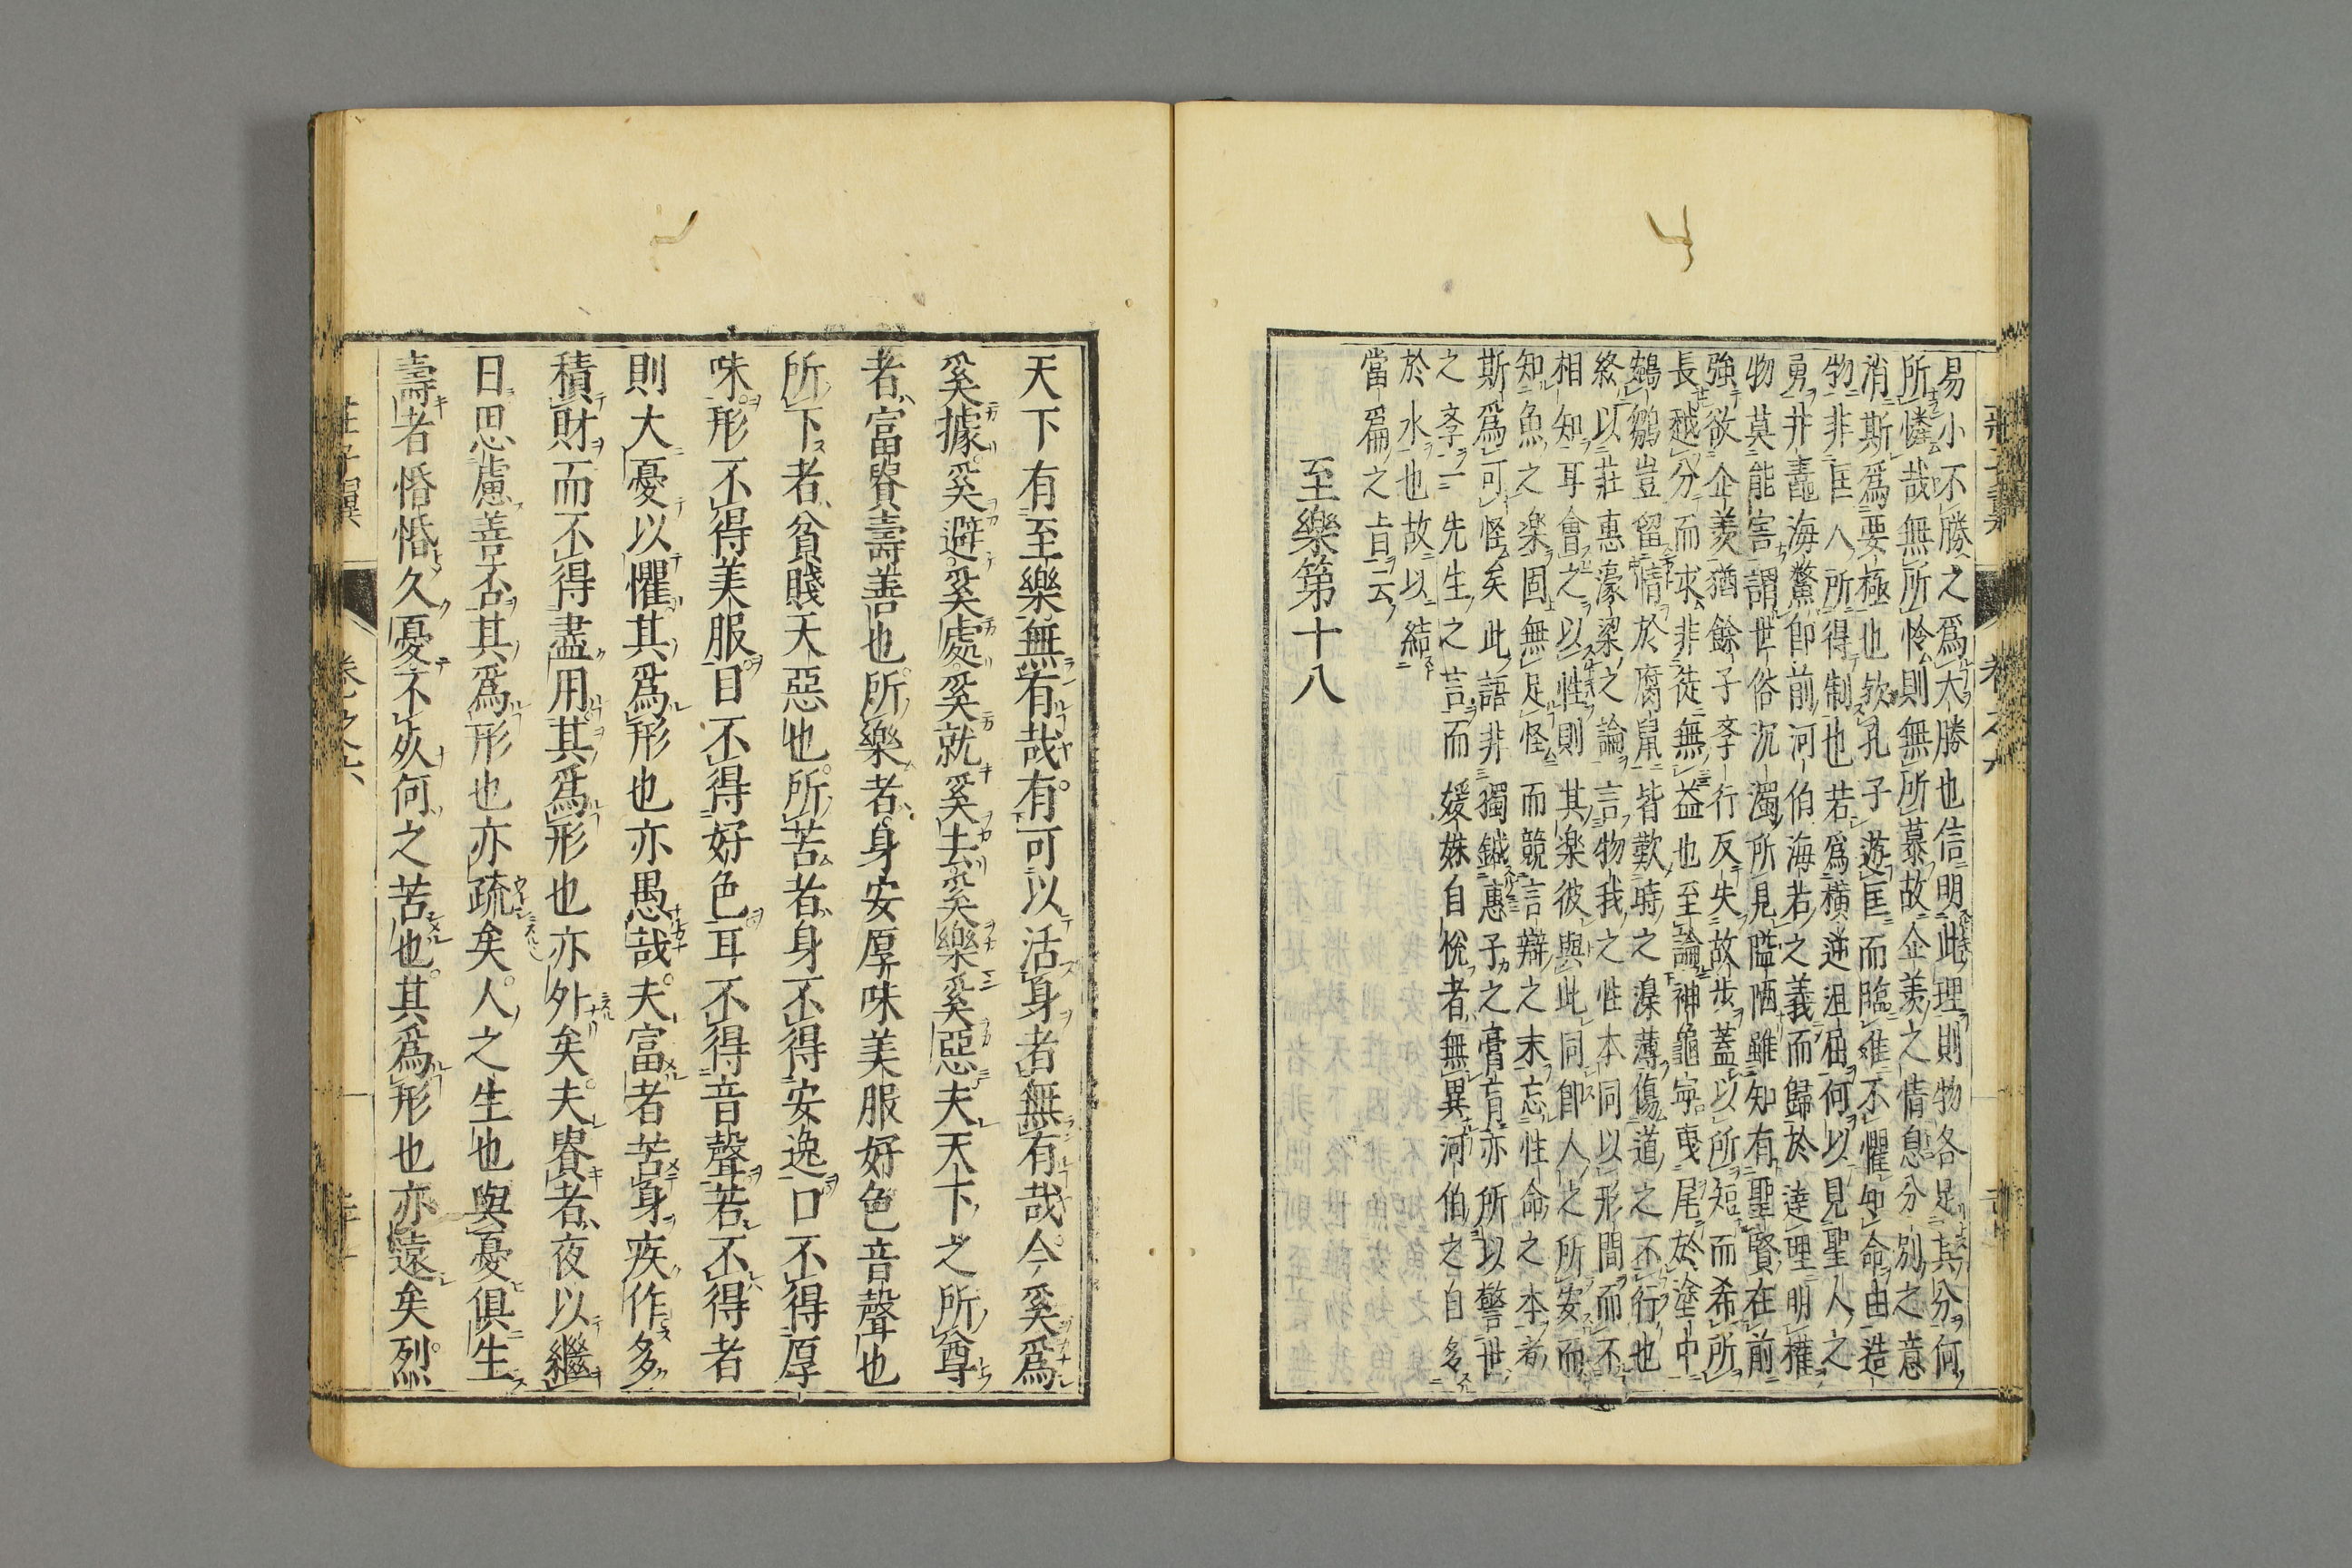 易小不勝之爲大勝也信明此理則物各足其分何
所憐哉無所怜則無所慕故企羨之情息分別之意
消斯爲要極也欤孔子遊匡而臨难不懼知命由造
物非匡人所得制也若爲橫逆沮屈何以見聖人之
勇井鼃海鱉即前河伯海若之義而歸於達理明權
物莫能害謂世俗沉濁所見隘陋雖知有聖賢在前
強欲企羨猶餘子孛行反失故步蓋以所短而希所
長越分而求非徒無益也至論神龜寕曳尾於塗中
鵷鶵豈留情於腐鼠皆歎時之湨薄傷道之不行也
終以莊惠濠梁之論言物我之性本同以形間而不
相知耳會之以性則其楽彼與此同即人之所安而
知魚之楽固無足怪而競言辯之末忘性命之本者
斯爲可怪矣此語非獨鍼惠子之膏肓亦所以警世
之孛一先生之言而媛姝自悅者無異河伯之自多
於水也故以結
當篇之旨云
至樂第十八
天下有至樂無有哉有可以活身者無有哉今奚爲
奚據奚避奚處奚就奚去奚樂奚惡夫天下之所尊
者富貴壽善也所樂者身安厚味美服好色音聲也
所下者貧賤夭惡也所苦者身不得安逸口不得厚
味形不得美服目不得好色耳不得音聲若不得者
則大憂以懼其爲形也亦愚哉夫富者苦身疾作多
積財而不得盡用其爲形也亦外矣夫貴者夜以繼
日思慮善否其爲形也亦疏矣人之生也與憂俱生
壽者惛惛久憂不死何之苦也其爲形也亦遠矣烈